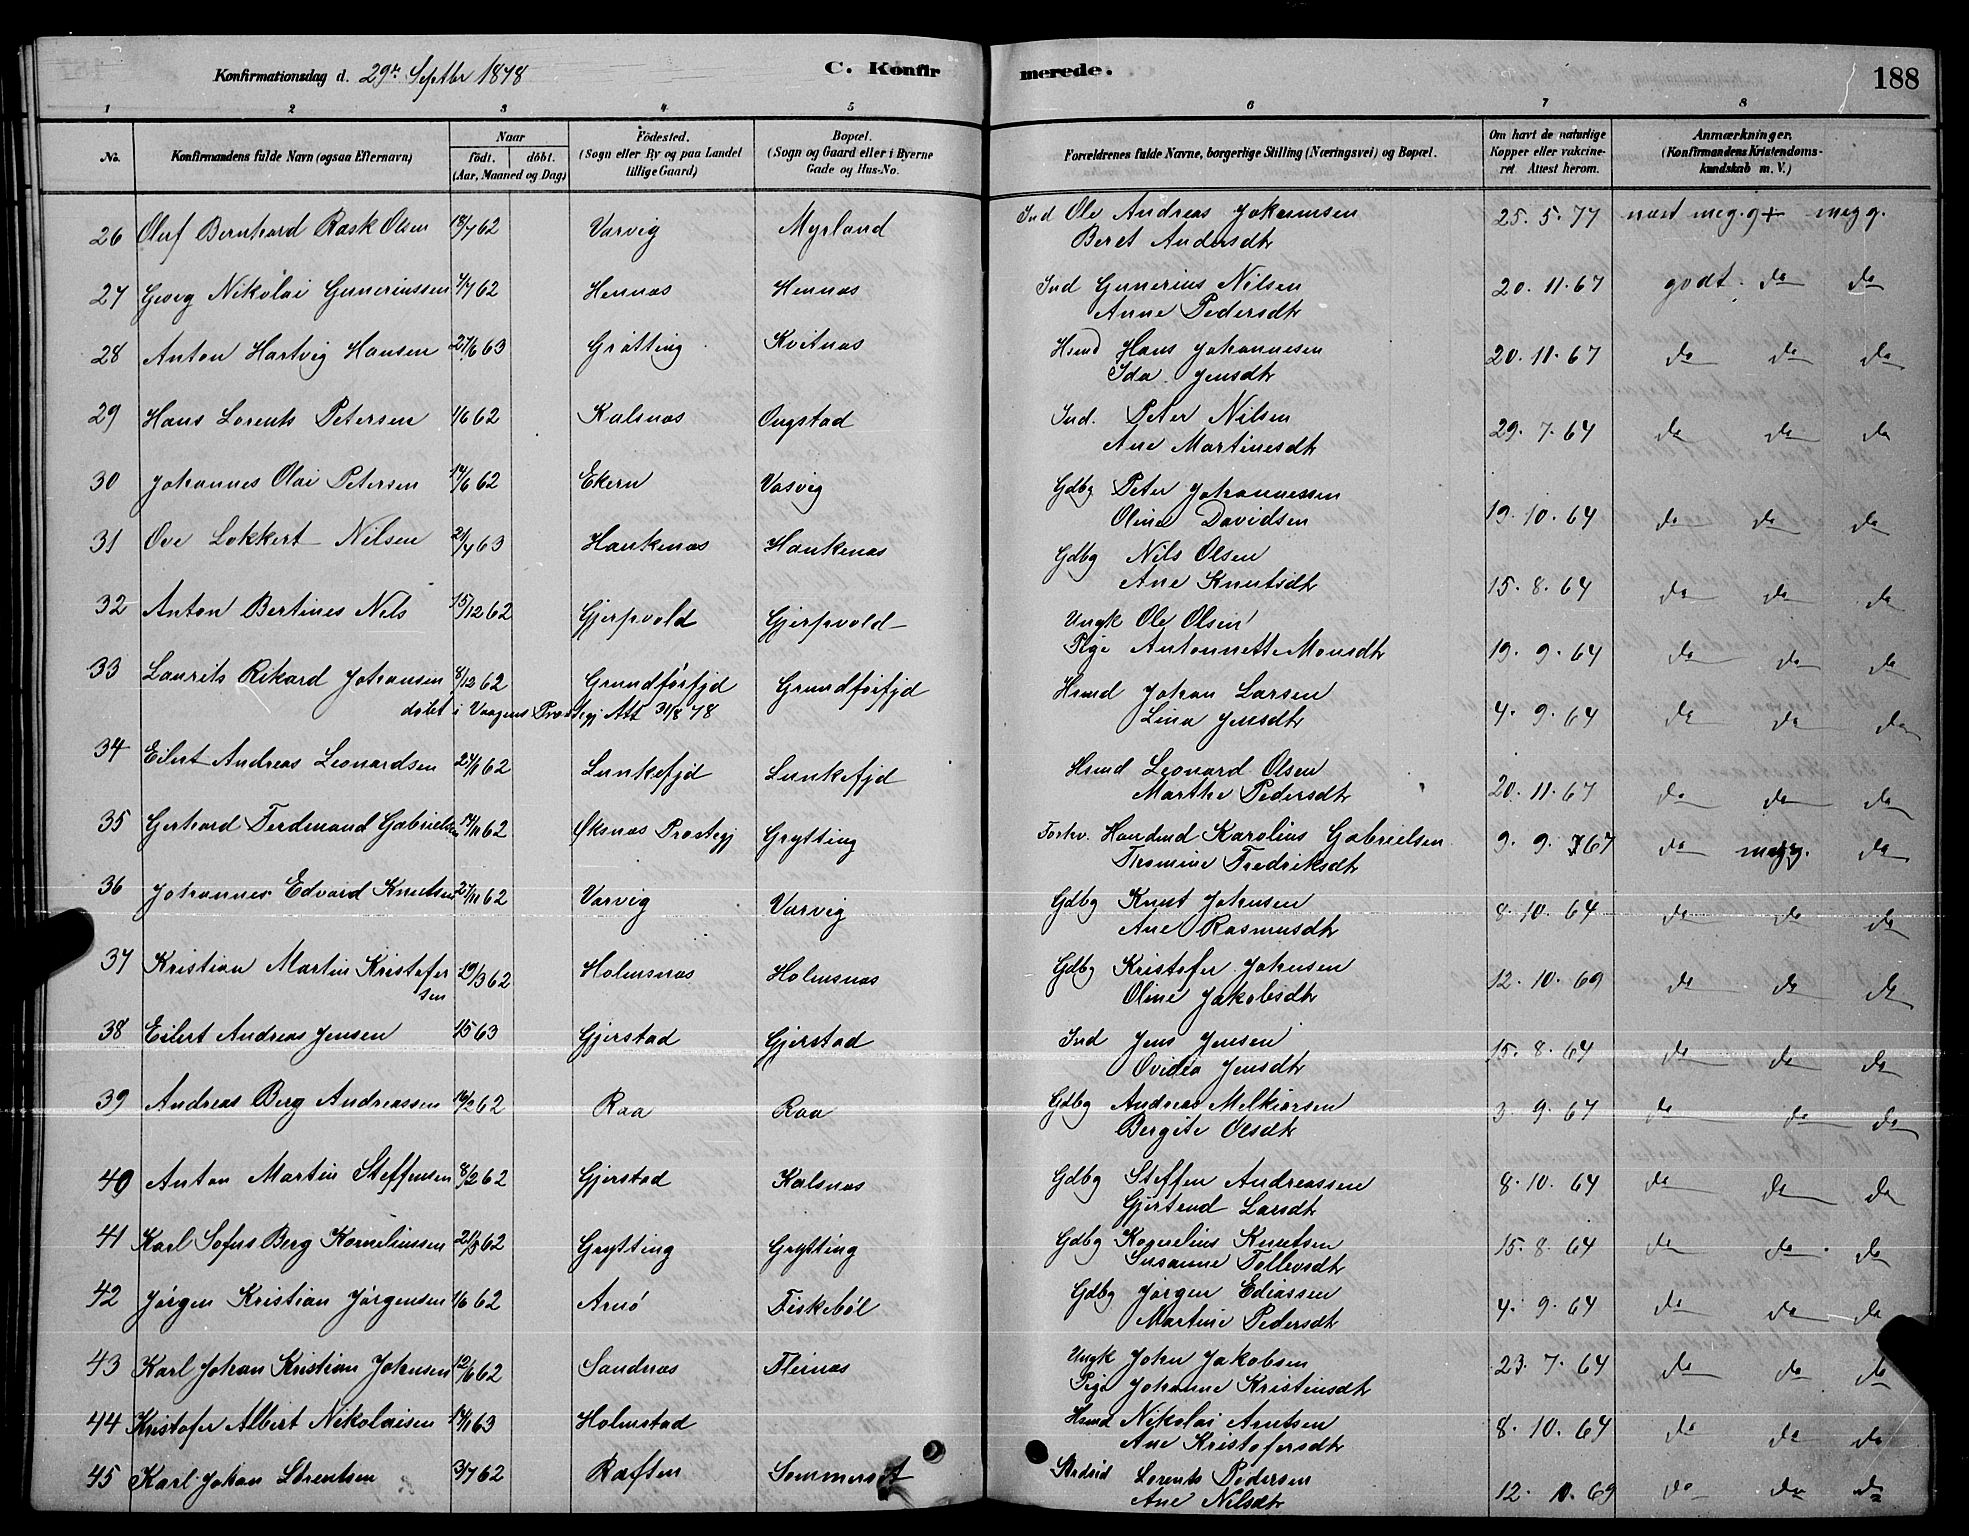 Konfirmationsdag d. 29de Septbr 1878 C. Konfirmerede. 188
1 2 3 4 5 6 7 8
No. Konfirmandens fulde Navn (ogsaa Efternavn) Naar født. døbt. (Aar, Maaned og Dag) Födested. (Sogn eller By og paa Landet tillige Gaard) Bopæl. (Sogn og Gaard eller i Byerne Gade og Hus-No. Forældrenes fulde Navne, borgerlige Stilling (Næringsvei) og Bopæl. Om havt de naturlige Kopper eller vakcineret Attest herom. Anmærkninger. (Konfirmandens Kristendomskundskab m. V.)
26 Oluf Bernhard Rask Olsen 18/7 62 Varvig Myrland Ind Ole Andreas Johannsen 25. 5. 77 næst meg. g+ meg g.
Beret Andersdtr
27 Georg Nikolai Guneriussen 4/7 62 Hennæs Hennæs Ind Gunerius Nilsen 20. 11. 67 godt. do do
Anne Pedersdtr
28 Anton Hartvig Hansen 27/6 63 Gråtting Kvitnæs Hsmd Hans Johannesen 20. 11. 67 do do do
Ida Jensdtr
29 Hans Lorents Petersen 1/6 62 Kalsnæs Ongstad Ind. Peter Nilsen 29. 7. 64 do do do
Ane Martinesdtr
30 Johannes Olai Petersen 14/6 62 Ekern Vasvig Gdbg Peter Johannessen 19. 10. 64 do do do
Oline Davidsen
31 Ove Lokkert Nilsen 21/4 63 Haukenæs Haukenæs Gdbg Nils Olsen 15. 8. 64 do do do
Ane Knutsdtr
32 Anton Bertines Nils 15/12 62 Gjerpvold Gjerpvold Ungk Ole Olsen 19. 9. 64 do do do
Pige Antonnette Monsdtr
33 Laurits Rikard Johansen 8/12 62 Grundförfjd Grundförfjd Hsmd Johan Larsen 4. 9. 64 do do do
døbt i Vaagens Prostegj Att 31/8 78 Lina Jensdtr
34 Eilert Andreas Leonardsen 24/1 62 Lunkefjd Lunkefjd Hsmd Leonard Olsen 20. 11. 67 do do do
Marthe Pedersdtr
35 Gerhard Ferdinand Gabrielsen 14/11 62 Øksnæs Prostegj Grytting Forhv. Handlmd Karolius Gabrielsen 9. 9. 67 do meg g. do
Thomine Fredriksdtr
36 Johannes Edvard Knutsen 27/11 62 Varvig Varvig Gdbg Knut Johnsen 8. 10. 64 do do do
Ane Rasmusdtr
37 Kristian Martin Kristofersen 19/3 62 Holmsnæs Holmsnæs Gdbg Kristofer Johnsen 12. 10. 69 do do do
Oline Jakobsdtr
38 Eilert Andreas Jensen 1/5 63 Gjerstad Gjerstad Ind Jens Jensen 15. 8. 64 do do do
Ovidea Jensdtr
39 Andreas Berg Andreassen 16/2 62 Raa Raa Gdbg Andreas Melkiorsen 3. 9. 67 do do do
Bergite Olsdtr
40 Anton Martin Steffensen 8/2 62 Gjerstad Kalsnæs Gdbg Steffen Andreassen 8. 10. 64 do do do
Gjertrud Larsdtr
41 Karl Sofus Berg Korneliussen 21/3 62 Grytting Grytting Gdbg Kornelius Knutsen 15. 8. 64 do do do
Susanne Tollevsdtr
42 Jörgen Kristian Jörgensen 1/6 62 Arnö Fiskeböl Gdbg Jörgen Ediassen 4. 9. 64 do do do
Martine Pedersdtr
43 Karl Johan Kristian Johnsen 12/6 62 Sandnæs Fleinæs Ungk John Jakobsen 23. 7. 64 do do do
Pige Johanne Kristinsdtr
44 Kristofer Albert Nikolaisen 14/1 63 Holmstad Hsmd Nikolai Arntsen 8. 10. 64 do do do
Ane Kristofersdtr
45 Karl Johan Lörentsen 3/7 62 Raften Sommerset Lorents Pedersen 12. 10. 69 do do do
Ane Nilsdtr